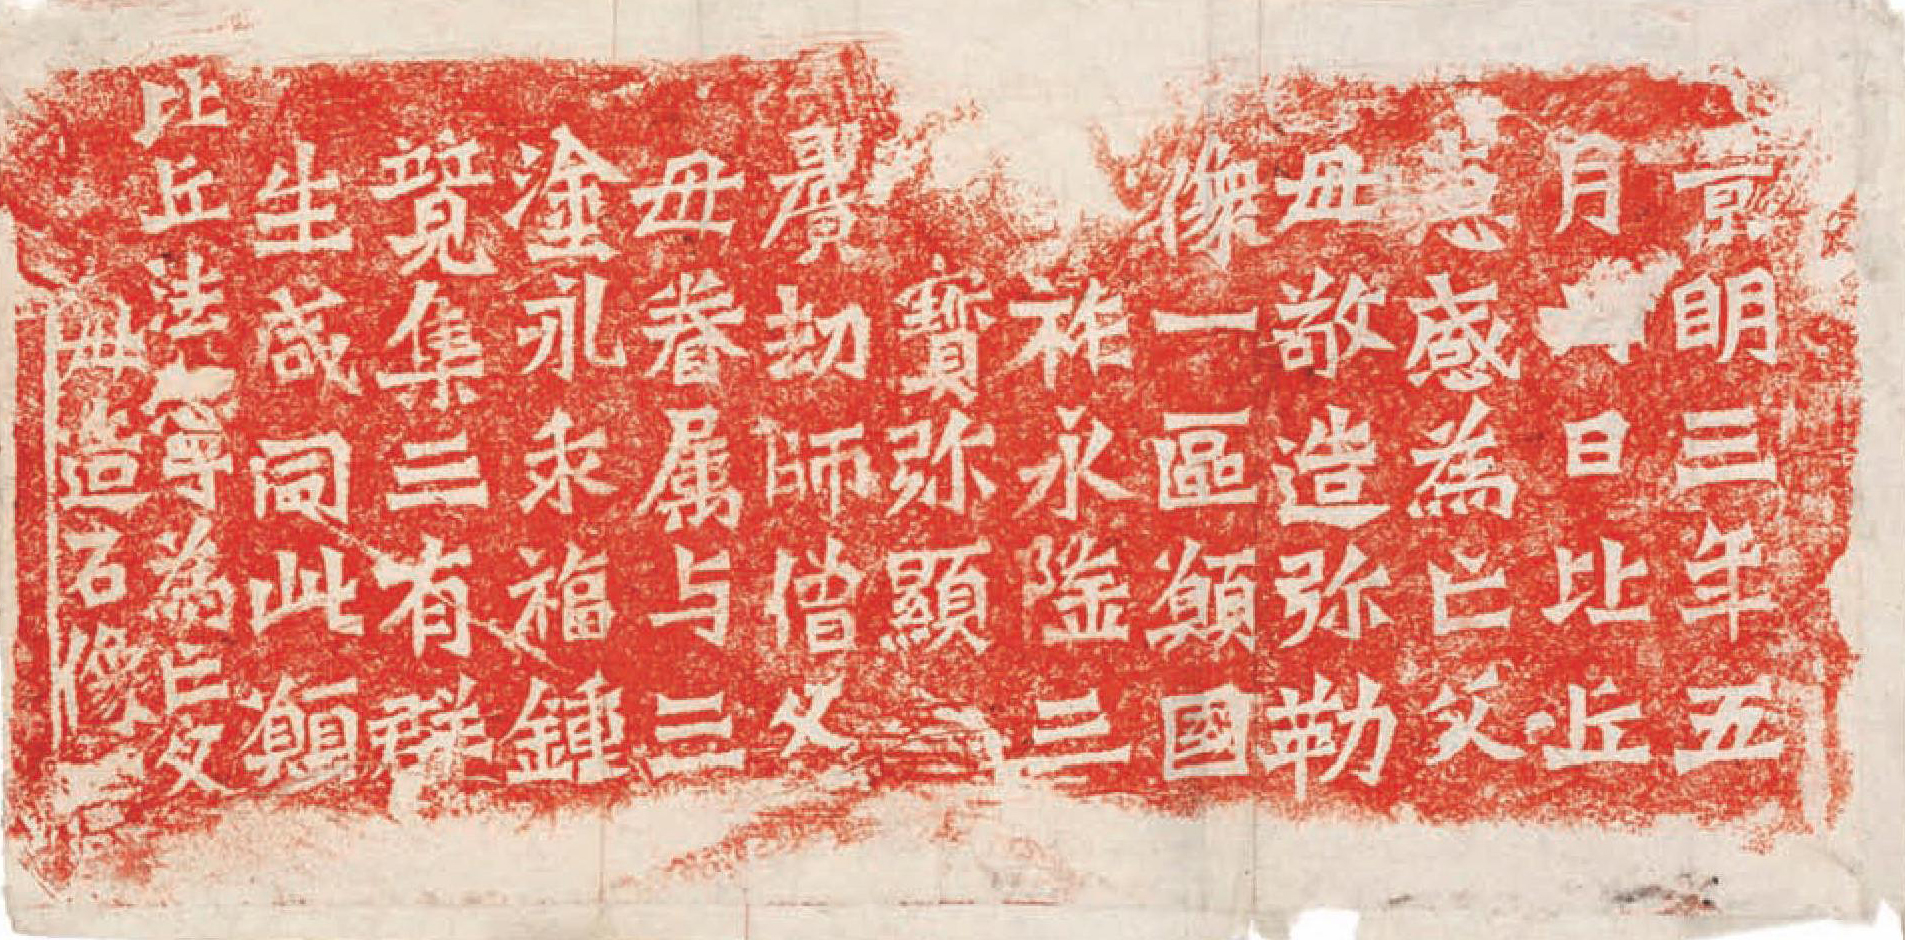 景明三年五
月日比丘
惠感為亡父
母敬造弥勒
像一區願國
祚永隆三
寶弥顯
曠劫師僧父
母眷属与三
塗永乖福鍾
竟集三有群
生咸同此願
比丘法寧為亡父
母造石像